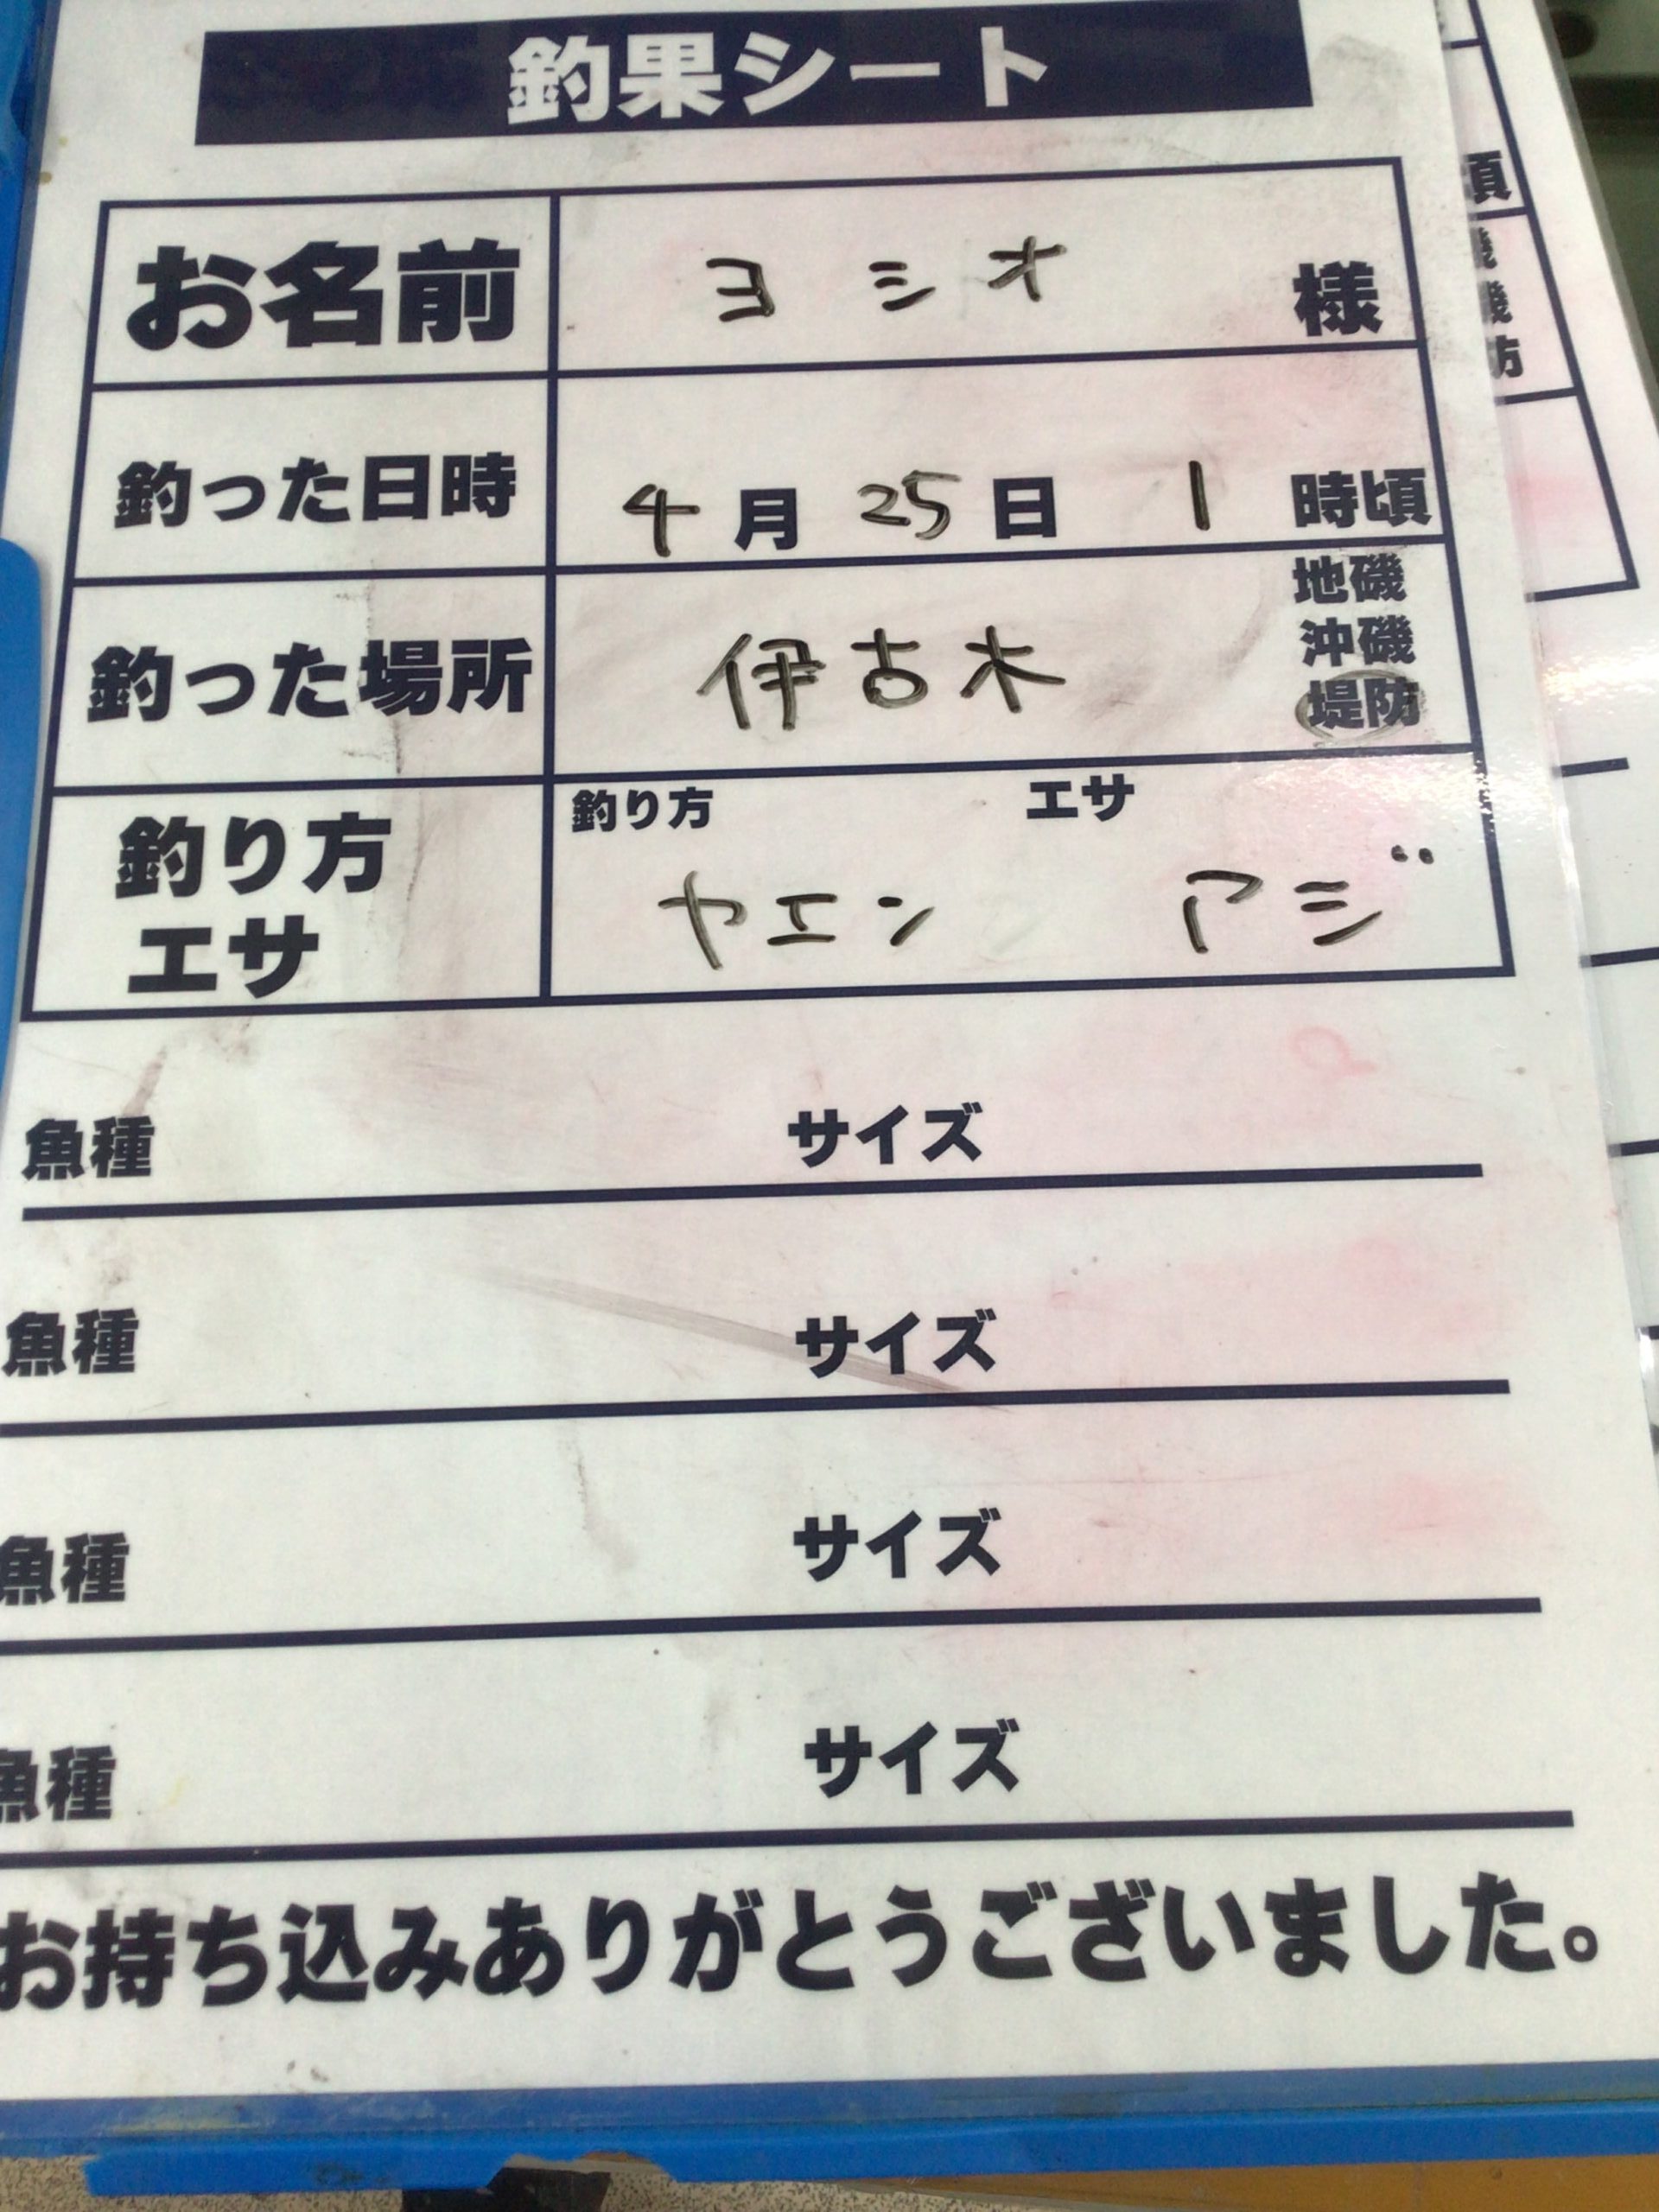 釣果シート
お名前 ヨシオ 様
釣った日時 4月25日 1時頃
釣った場所 伊古木 地磯
沖磯
堤防
釣り方 エサ 釣り方 エサ
ヤエン アジ
魚種 サイズ
魚種 サイズ
魚種 サイズ
魚種 サイズ
お持ち込みありがとうございました。
頃
磯
磯
防